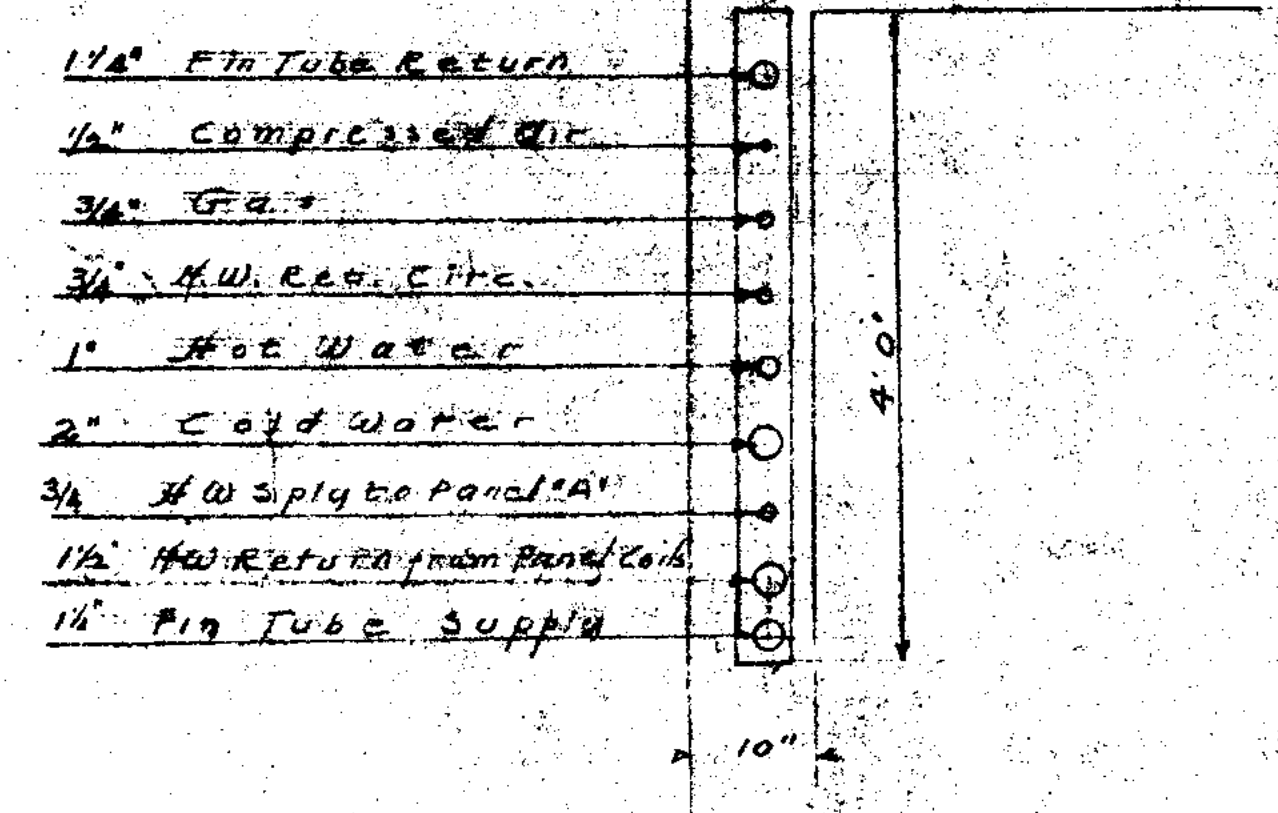 1 1/4" Fin Tube Return
1/2" Compressed Air
3/4" Gas
3/4" H.W. Ret. Circ.
1" Hot Water
2" Cold Water
3/4 HW Sply to Panel "A"
1 1/2" HW Return from Panel Coils
1 1/4" Fin Tube Supply
4'0"
10"